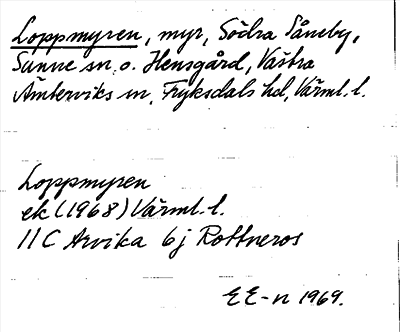 Loppmyren, myr, Södra Såneby,
Sunne sn o. Hensgård, Västra
Ämterviks sn, Fryksdals hd, Värml. l.
Loppmyren
ek (1968) Värml. l.
11C Arvika 6j Rottneros
EE-n 1969.